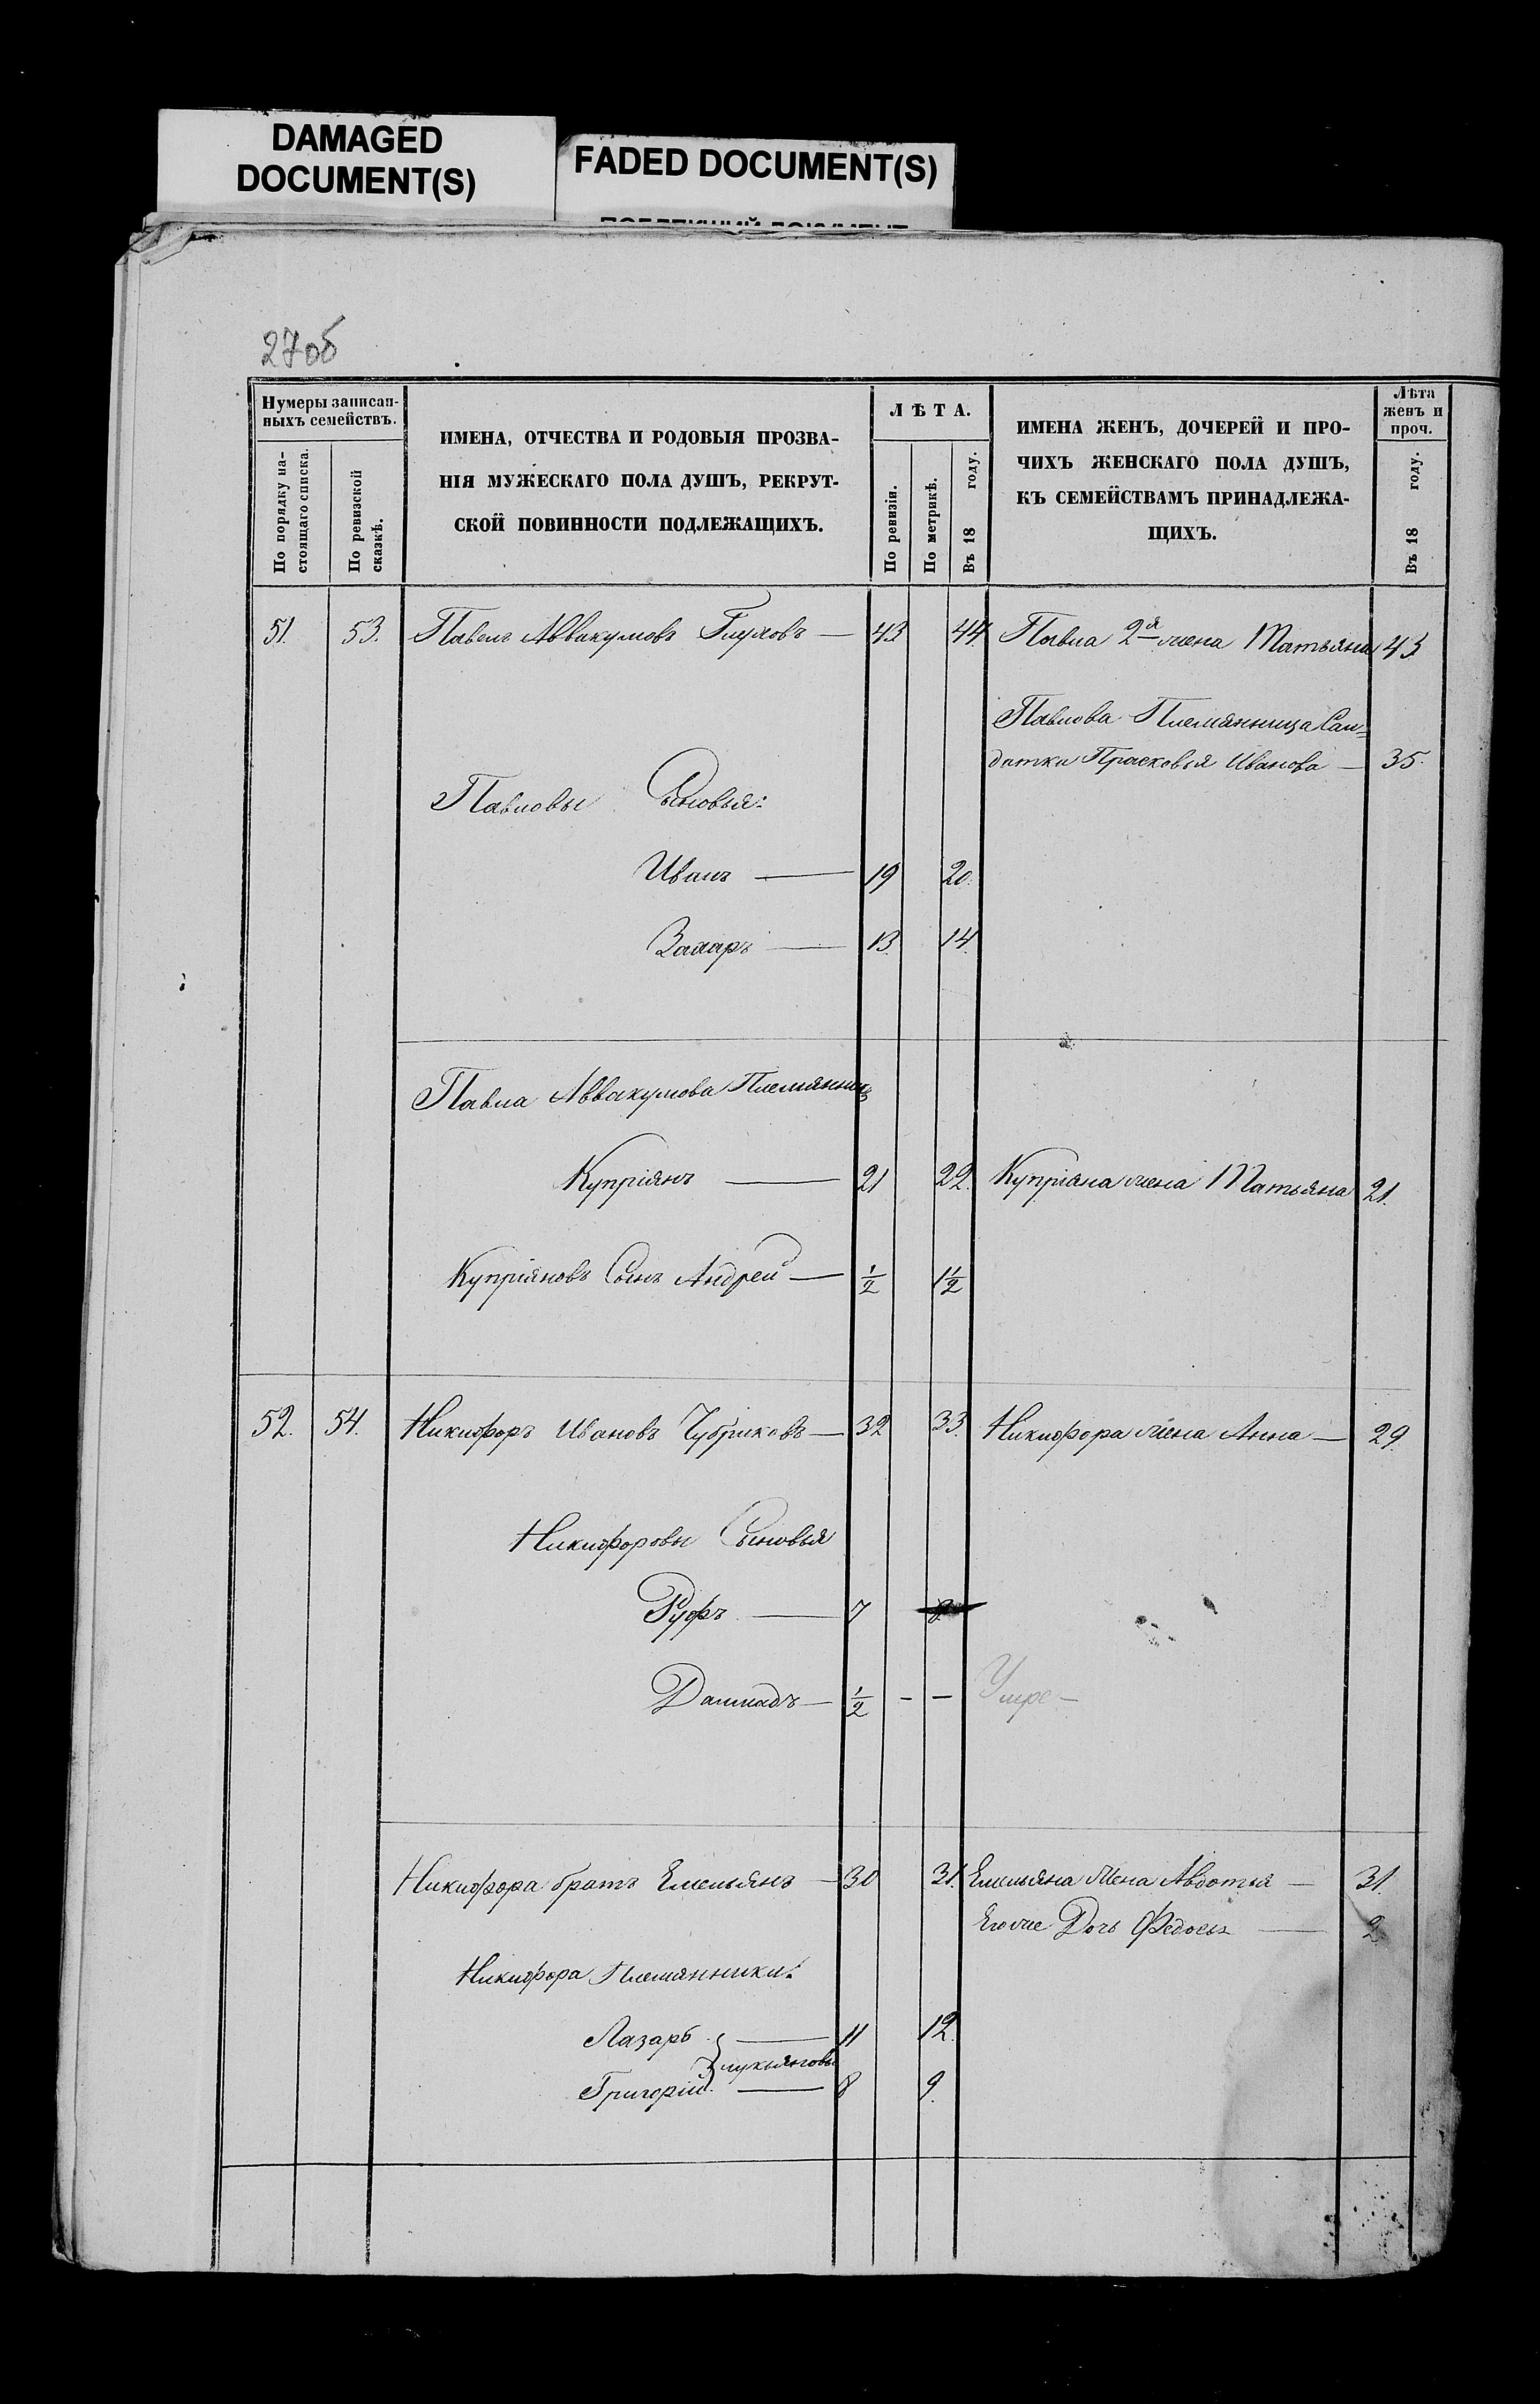 DAMAGED
DOCUMENT(S)
FADED DOCUMENT(S)
27об
Нумеры записан-
ныхъ семействъ.
По порядку на-
стоящаго списка.
По ревизской
сказкѣ.
ИМЕНА, ОТЧЕСТВА И РОДОВЫЯ ПРОЗВА-
НІЯ МУЖЕСКАГО ПОЛА ДУШЪ, РЕКРУТ-
СКОЙ ПОВИННОСТИ ПОДЛЕЖАЩИХЪ.
ЛѢТА.
По ревизіи.
По метрикѣ.
Въ 18 году.
ИМЕНА ЖЕНЪ, ДОЧЕРЕЙ И ПРО-
ЧИХЪ ЖЕНСКАГО ПОЛА ДУШЪ,
КЪ СЕМЕЙСТВАМЪ ПРИНАДЛЕЖА-
ЩИХЪ.
Лѣта
женъ и
проч.
Въ 18 году.
51. 53. Павелъ Аввакумовъ Глуховъ — 43 44. Павла 2я жена Татьяна 43
Павлова Племянница Сал-
датка Прасковья Иванова — 35.
Павловы Сыновья:
Иванъ — 19 20.
Захаръ — 13. 14.
Павла Аввакумова Племянникъ
Купріянъ — 21 22. Купріяна жена Татьяна 21.
Купріяновъ Сынъ Андрей — ½ 1½
52. 54. Никифоръ Ивановъ Чубриковъ — 32 33. Никифора жена Анна — 29.
Никифоровы Сыновья
Руфъ — 7 8.
Далмадъ — ½ - — Умре —
Никифора братъ Емельянъ — 30 31. Емельяна Жена Авдотья — 31.
Его же Дочь Федосья — 2.
Никифора Племянники:
Лазарь — 11 12.
лукьяновы
Григорій — 8 9.